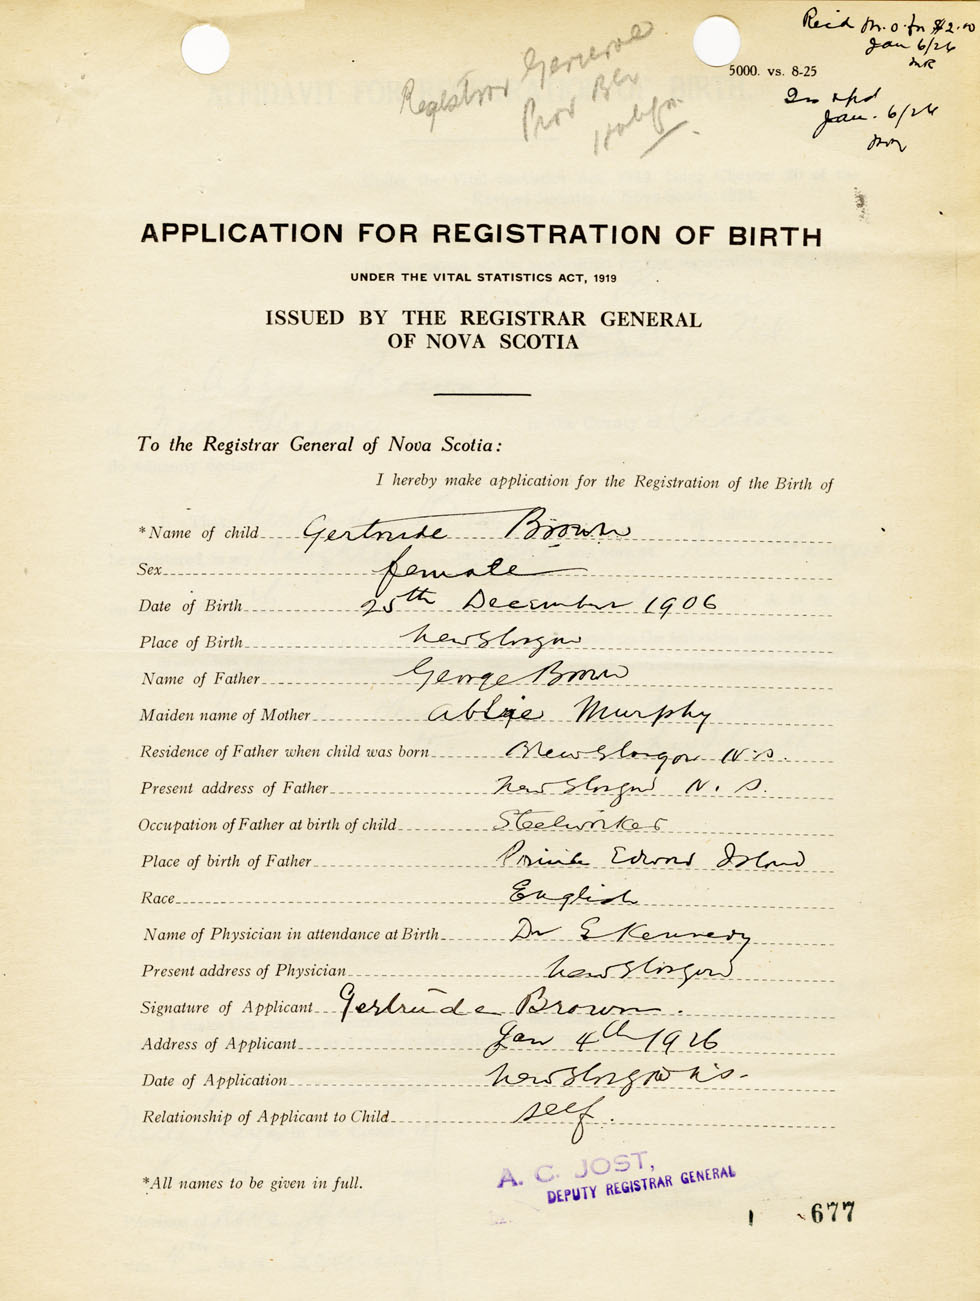 Rec'd M.O. for $2.00
Jan 6/26
MR
5000. vs. 8-25
Registrar General
Prov Bldg
Halifax
Jan. 6/26
APPLICATION FOR REGISTRATION OF BIRTH
UNDER THE VITAL STATISTICS ACT, 1919
ISSUED BY THE REGISTRAR GENERAL
OF NOVA SCOTIA
To the Registrar General of Nova Scotia:
I hereby make application for the Registration of the Birth of
*Name of child Gertrude Brown
Sex female
Date of Birth 25th December 1906
Place of Birth New Glasgow
Name of Father George Brown
Maiden name of Mother Murphy
Residence of Father when child was born New Glasgow N.S.
Present address of Father New Glasgow N. S.
Occupation of Father at birth of child Steelworker
Place of birth of Father Prince Edward Island
Race English
Name of Physician in attendance at Birth Dr E Kennedy
Present address of Physician New Glasgow
Signature of Applicant Gertrude Brown.
Address of Applicant Jan 4th 1926
Date of Application New Glasgow N.S.
Relationship of Applicant to Child self.
*All names to be given in full.
A. C. JOST,
DEPUTY REGISTRAR GENERAL
677